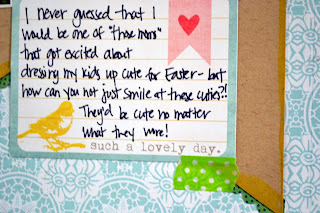 I never guessed that I
would be one of "those moms"
that got excited about
dressing my kids up cute for Easter - but
how can you not just smile at these cuties?!
They'd be cute no matter
what they wore!
such a lovely day.